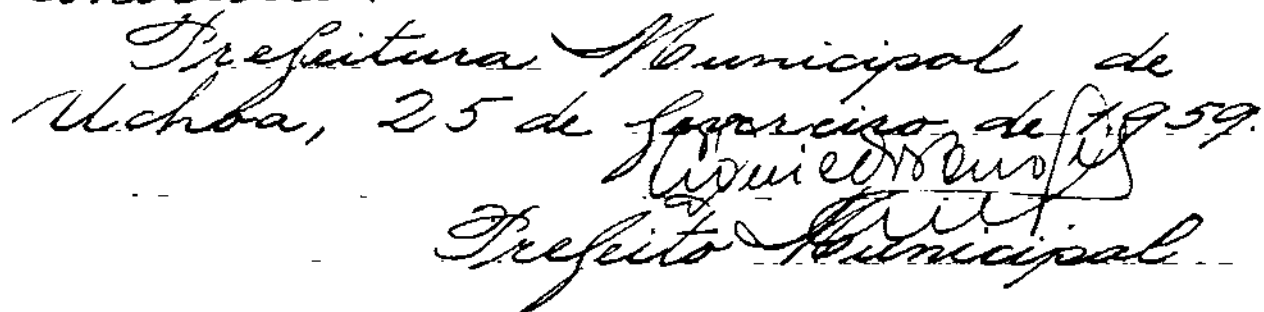 Prefeitura Municipal de
Uchôa, 25 de fevereiro de 1.959.
Prefeito Municipal